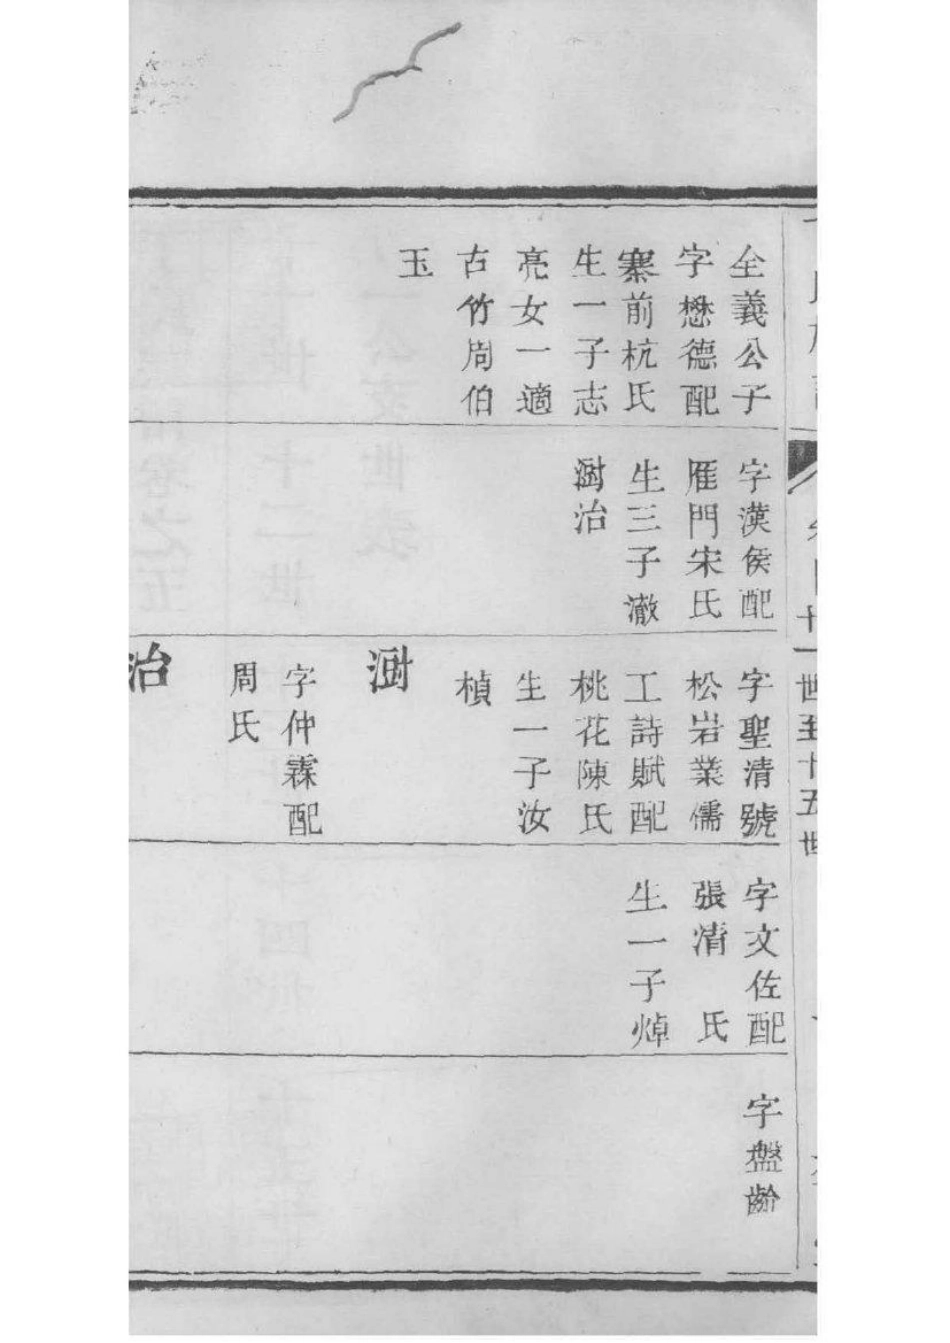 全義公子
字懋德配
寨前杭氏
生一子志
亮女一適
古竹周伯
玉
字漢侯配
雁門宋氏
生三子澈
澍治
字聖清號
松岩業儒
工詩賦配
桃花陳氏
生一子汝
楨
澍
字仲霖配
周氏
治
字文佐配
張清氏
生一子焯
字盤齡
十一世至十五世